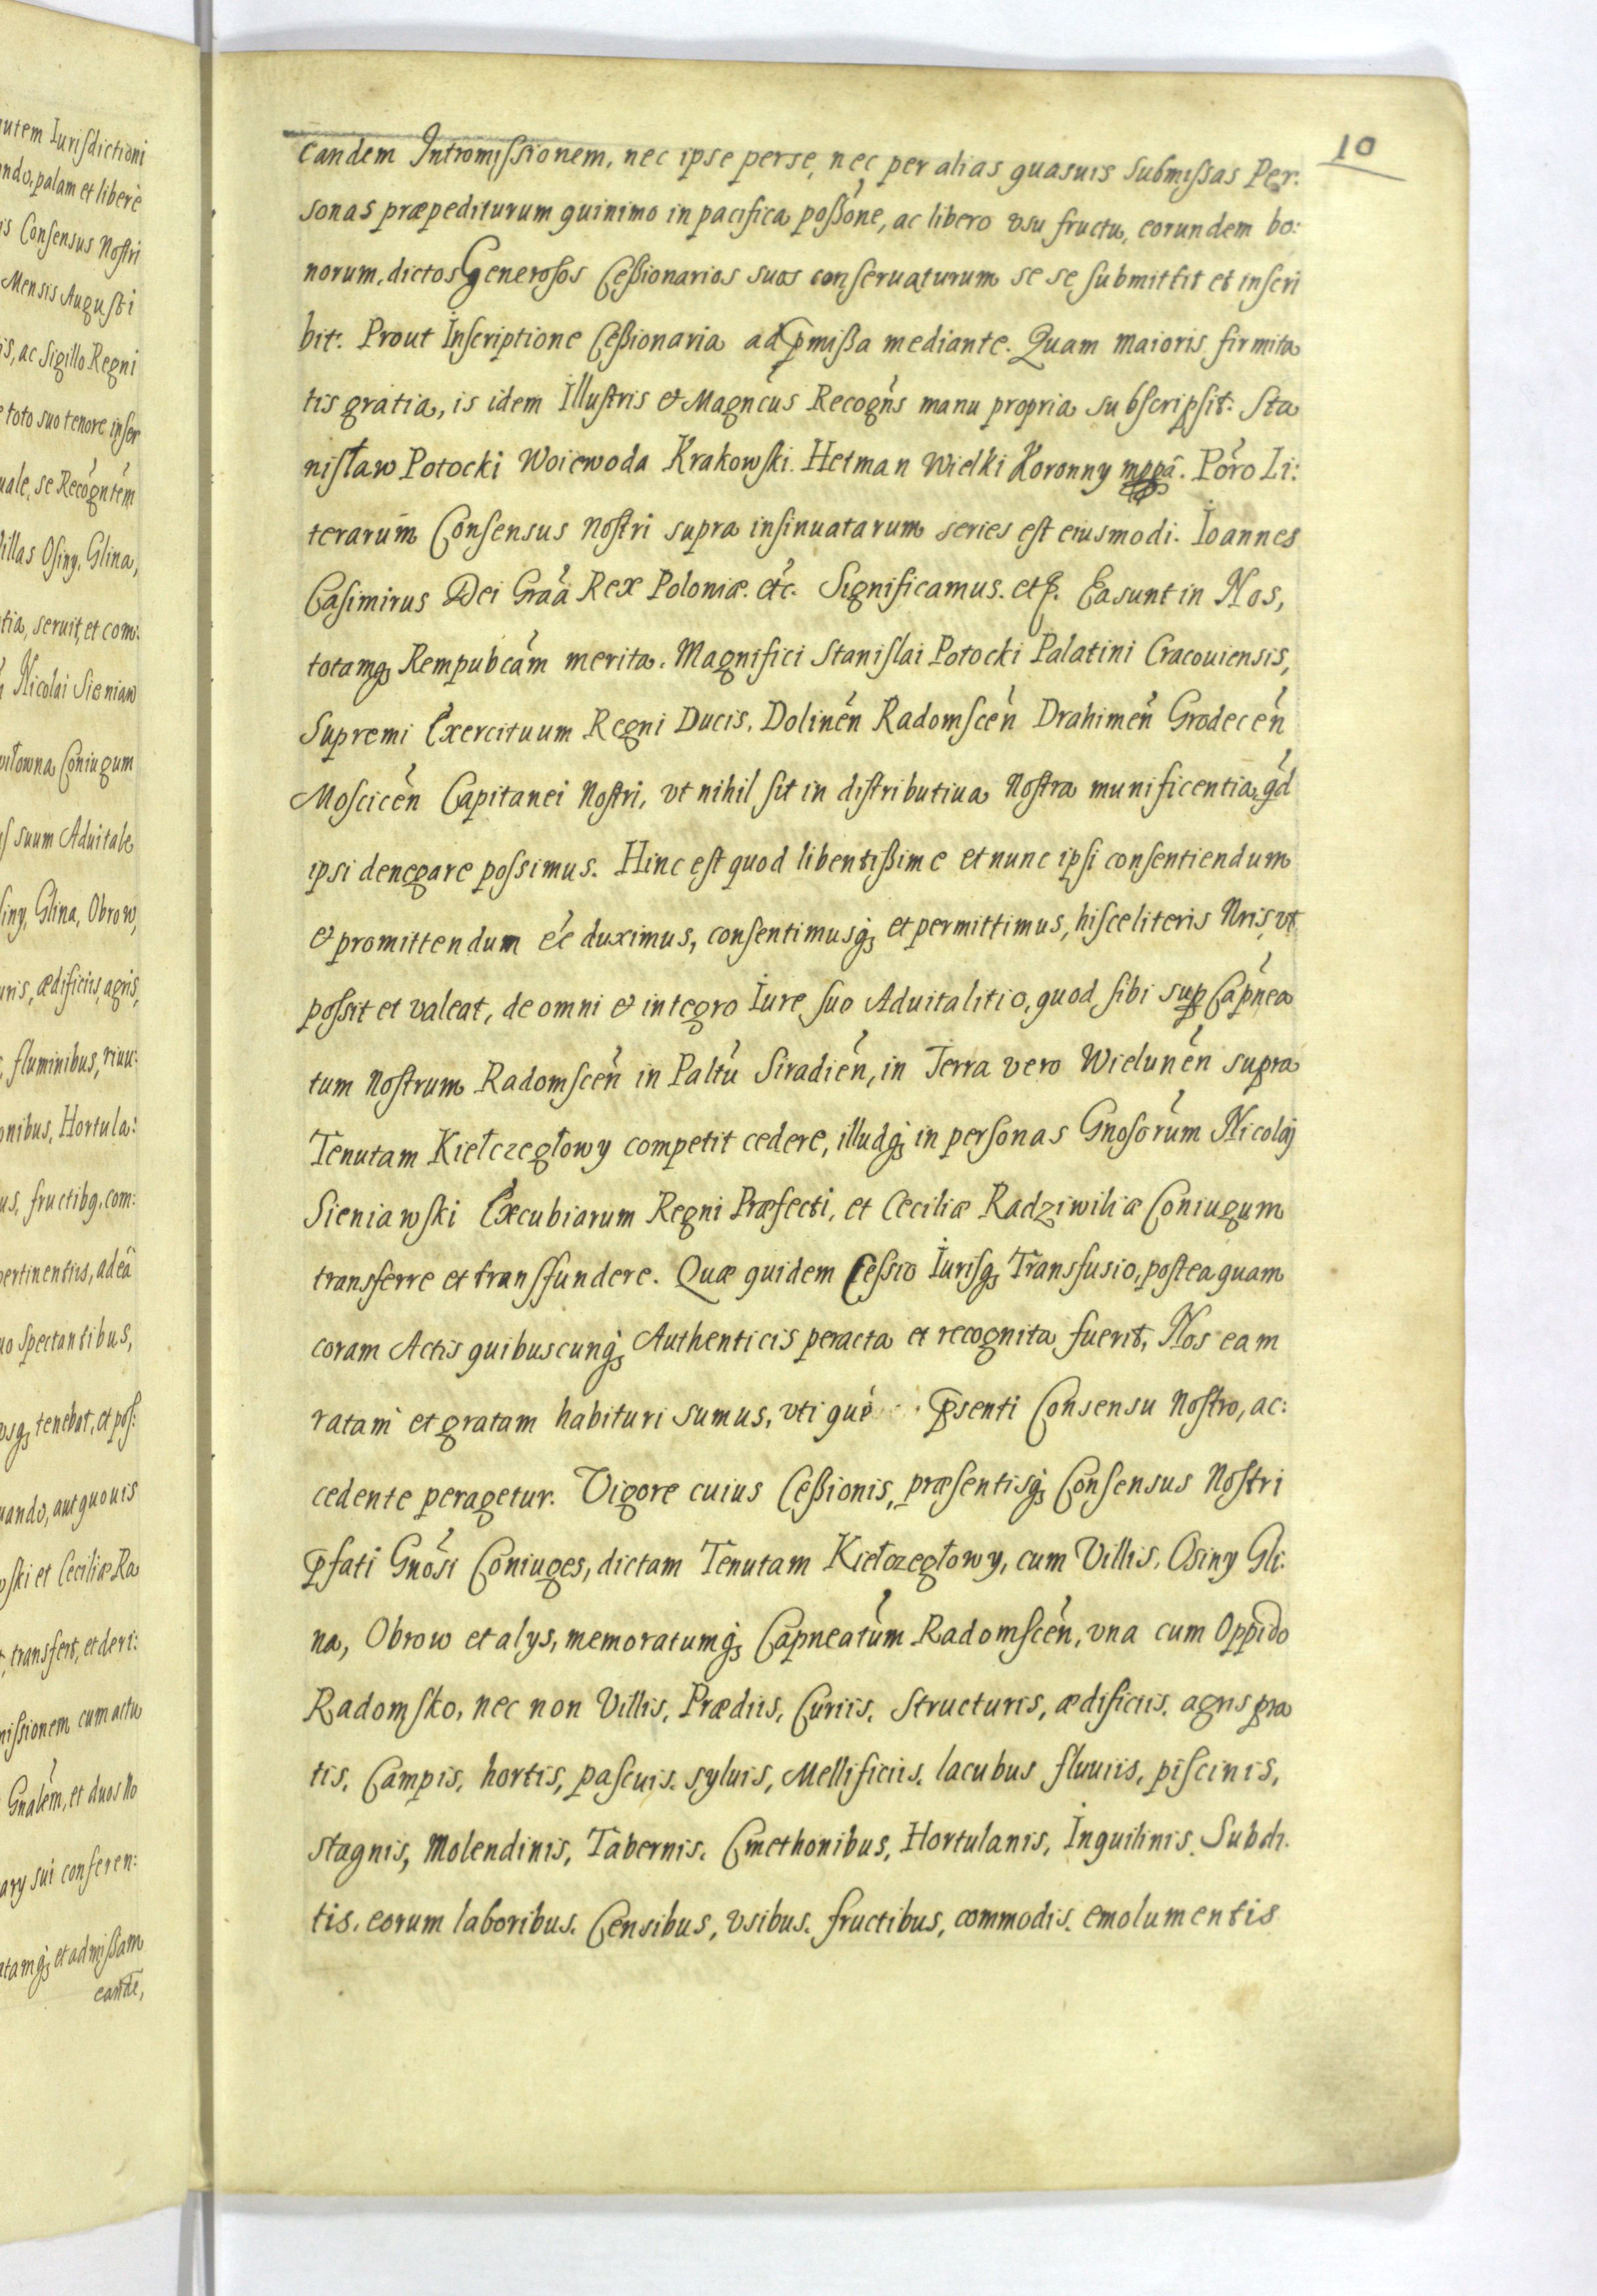 utem Iurisdictioni
ndo, palam et liberè
is Consensus Nostri
Mensis Augusti
is, ac Sigillo Regni
toto suo tenore inser
uale, se Recógntém
illas Osiny, Glina,
tia, seruit, et com:
Nicolai Sieniaw
wiłowna Coniugum
suum Aduitale
siny, Glina, Obrow,
uris, ædificiis, agris,
fluminibus, riuu:
onibus, Hortula:
us, fructibq, com:
pertinentiis, adeâ
uo spectantibus,
usq; tenebat, et pos:
uando, aut quouis
wski et Ceciliæ Ra
transfert, et deri:
missionem cum actu
Gnalém, et duos No
ary sui conferen:
atamq; et admißam
eandē,
10
eandem Intromissionem, nec ipse per se, nec per alias quasuis submissas Per:
sonas præpediturum quinimo in pacifica poßóne, ac libero vsu fructu, eorundem bo:
norum, dictos Generosos Ceßionarios suos conseruaturum se se submittit et inscri
bit. Prout Inscriptione Ceßionaria ad p̱mißa mediante. Quam maioris firmita
tis gratia, is idem Illustris et Magncús Recogńs manu propria subscripsit: Sta
nisław Potocki Woiewoda Krakowski Hetman Wielki Koronny mppâ. Póro Li:
terarum Consensus Nostri supra insinuatarum series est eiusmodi. Ioannes
Casimirus Dei Graá Rex Poloniæ. etć. Significamus. etc. Ea sunt in Nos,
totamq; Rempubcám merita, Magnifici Stanislai Potocki Palatini Cracouiensis,
Supremi Exercituum Regni Ducis, Dolinéń Radomsceń Drahimeń Grodeceń
Mosciceń Capitanei Nostri, vt nihil sit in distributiua Nostra munificentia, qd́
ipsi denegare possimus. Hinc est quod libentißime et nunc ipsi consentiendum
& promittendum eé duximus, consentimusq; et permittimus, hisce literis Nris, vt
possit et valeat, de omni & integro Iure suo Aduitalitio, quod sibi sup̱ Capńea
tum Nostrum Radomsceń in Paltú Siradień, in Terra vero Wieluneń supra
Tenutam Kiełczegłowy competit cedere, illudq; in personas Gnosórum Nicolaj
Sieniawski Excubiarum Regni Præfecti, et Ceciliæ Radziwiliæ Coniugum
transferre et transfundere. Quæ quidem Cessio Iurisq; Transfusio, postea quam
coram Actis quibuscunq; Authenticis peracta et recognita fuerit, Nos eam
ratam et gratam habituri sumus, vti quæ p̱senti Consensu Nostro, ac:
cedente peragetur. Vigore cuius Ceßionis, præsentisq; Consensus Nostri
p̱fati Gnósi Coniuges, dictam Tenutam Kiełczegłowy, cum Villis, Osiny Gli:
na, Obrow et alys, memoratumq; Capneatúm Radomsceń, vna cum Oppido
Radomsko, nec non Villis, Prædiis, Curiis, Structuris, ædificiis, agris pra
tis, Campis, hortis, pascuis, syluis, Mellificiis, lacubus fluuiis, piscinis,
stagnis, Molendinis, Tabernis, Cmethonibus, Hortulanis, Inquilinis, Subdi:
tis, eorum laboribus, Censibus, vsibus, fructibus, commodis, emolumentis